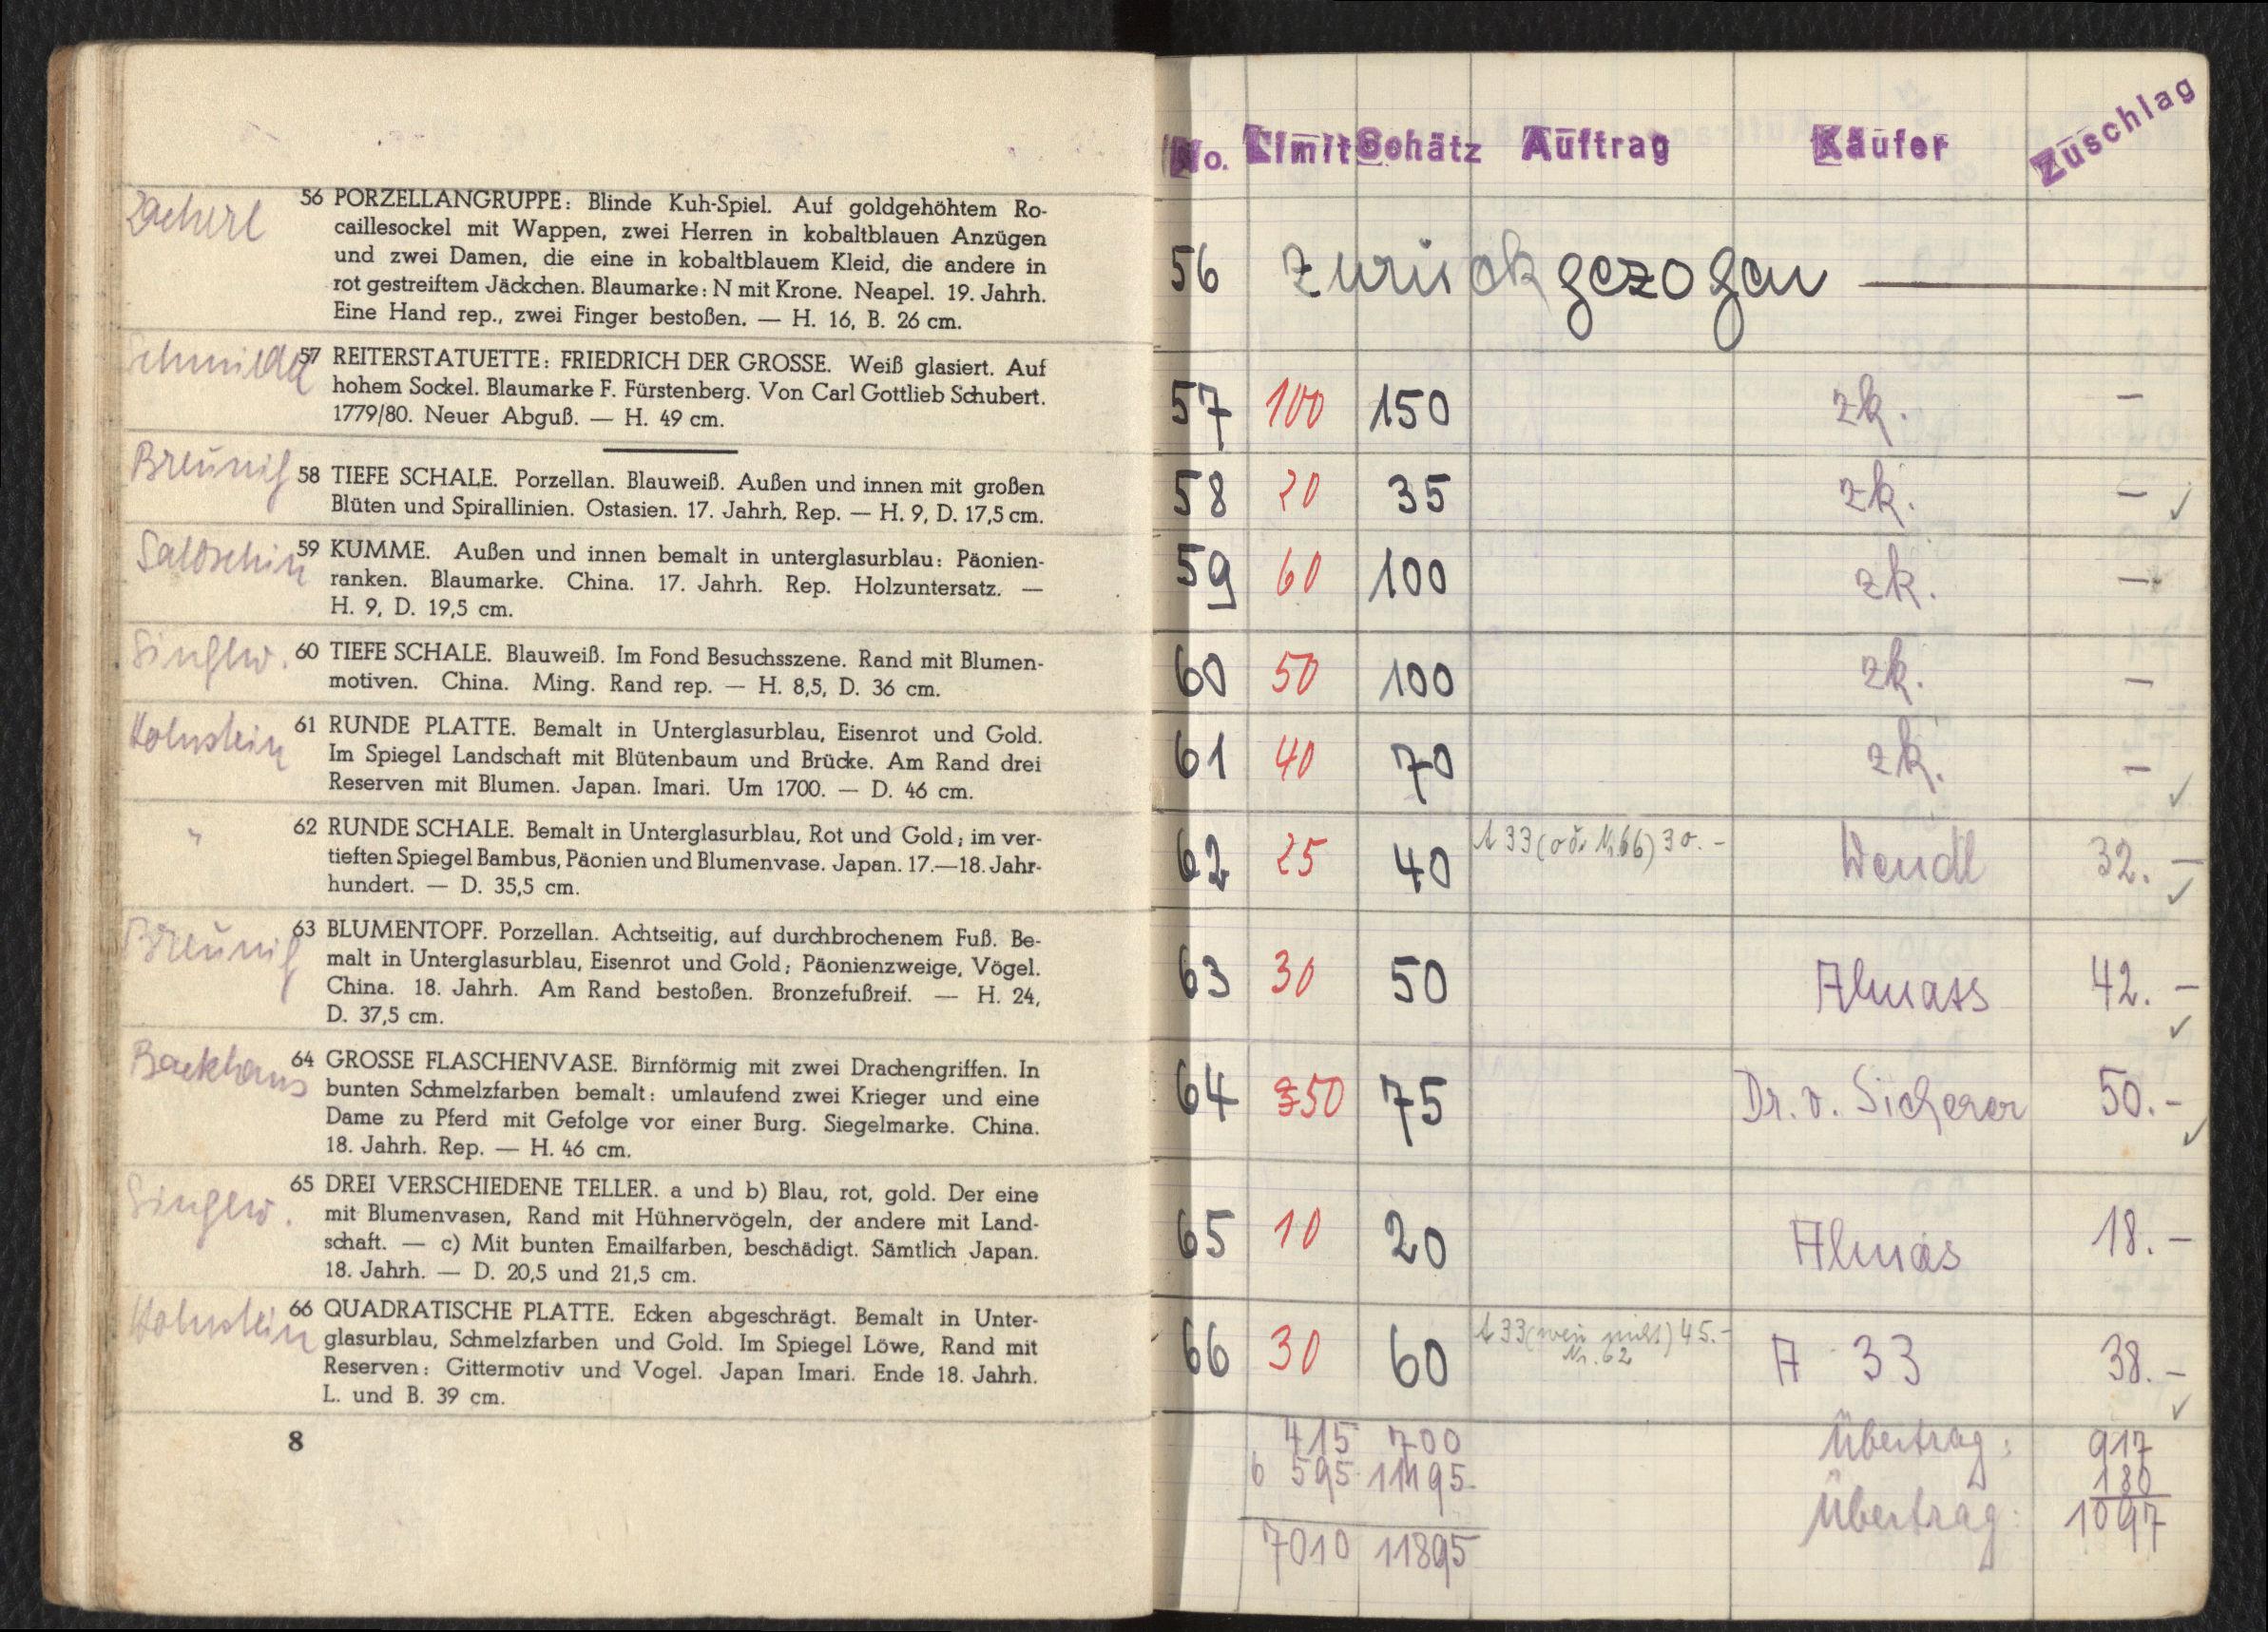 Zacherl
56 PORZELLANGRUPPE: Blinde Kuh-Spiel. Auf goldgehöhtem Ro-
caillesockel mit Wappen, zwei Herren in kobaltblauen Anzügen
und zwei Damen, die eine in kobaltblauem Kleid, die andere in
rot gestreiftem Jäckchen. Blaumarke: N mit Krone. Neapel. 19. Jahrh.
Eine Hand rep., zwei Finger bestoßen. — H. 16, B. 26 cm.
57 REITERSTATUETTE: FRIEDRICH DER GROSSE. Weiß glasiert. Auf
hohem Sockel. Blaumarke F. Fürstenberg. Von Carl Gottlieb Schubert.
1779/80. Neuer Abguß. — H. 49 cm.
Breünig
58 TIEFE SCHALE. Porzellan. Blauweiß. Außen und innen mit großen
Blüten und Spirallinien. Ostasien. 17. Jahrh. Rep. — H. 9, D. 17,5 cm.
Saloschin
59 KUMME. Außen und innen bemalt in unterglasurblau: Päonien-
ranken. Blaumarke. China. 17. Jahrh. Rep. Holzuntersatz. —
H. 9, D. 19,5 cm.
Singlw.
60 TIEFE SCHALE. Blauweiß. Im Fond Besuchsszene. Rand mit Blumen-
motiven. China. Ming. Rand rep. — H. 8,5, D. 36 cm.
Hohnstein
61 RUNDE PLATTE. Bemalt in Unterglasurblau, Eisenrot und Gold.
Im Spiegel Landschaft mit Blütenbaum und Brücke. Am Rand drei
Reserven mit Blumen. Japan. Imari. Um 1700. — D. 46 cm.
"
62 RUNDE SCHALE. Bemalt in Unterglasurblau, Rot und Gold; im ver-
tieften Spiegel Bambus, Päonien und Blumenvase. Japan. 17.—18. Jahr-
hundert. — D. 35,5 cm.
Breünig
63 BLUMENTOPF. Porzellan. Achtseitig, auf durchbrochenem Fuß. Be-
malt in Unterglasurblau, Eisenrot und Gold; Päonienzweige, Vögel.
China. 18. Jahrh. Am Rand bestoßen. Bronzefußreif. — H. 24,
D. 37,5 cm.
Backhaus
64 GROSSE FLASCHENVASE. Birnförmig mit zwei Drachengriffen. In
bunten Schmelzfarben bemalt: umlaufend zwei Krieger und eine
Dame zu Pferd mit Gefolge vor einer Burg. Siegelmarke. China.
18. Jahrh. Rep. — H. 46 cm.
Singlw.
65 DREI VERSCHIEDENE TELLER. a und b) Blau, rot, gold. Der eine
mit Blumenvasen, Rand mit Hühnervögeln, der andere mit Land-
schaft. — c) Mit bunten Emailfarben, beschädigt. Sämtlich Japan.
18. Jahrh. — D. 20,5 und 21,5 cm.
Hohnstein
66 QUADRATISCHE PLATTE. Ecken abgeschrägt. Bemalt in Unter-
glasurblau, Schmelzfarben und Gold. Im Spiegel Löwe, Rand mit
Reserven: Gittermotiv und Vogel. Japan Imari. Ende 18. Jahrh.
L. und B. 39 cm.
8
No. Limit Schätz Aūftrag Käufer Zuschlag
56 zurückgezogen —
57 100 150 zk. —
58 20 35 zk. — ✓
59 60 100 zk. —
60 50 100 zk. —
61 40 70 zk. — ✓
62 25 40 A 33 (od. Nr. 66) 30.- Wendl 32. — ✓
63 30 50 Almass 42. — ✓
64 50 75 Dr. v. Sicherer 50.- ✓
65 10 20 Almas 18. —
66 30 60 A 33 (wenn nicht) 45.- A 33 38. — ✓
Nr. 62
415 700 Übertrag: 917
6 595 11195 180
7010 11895 Übertrag: 1097